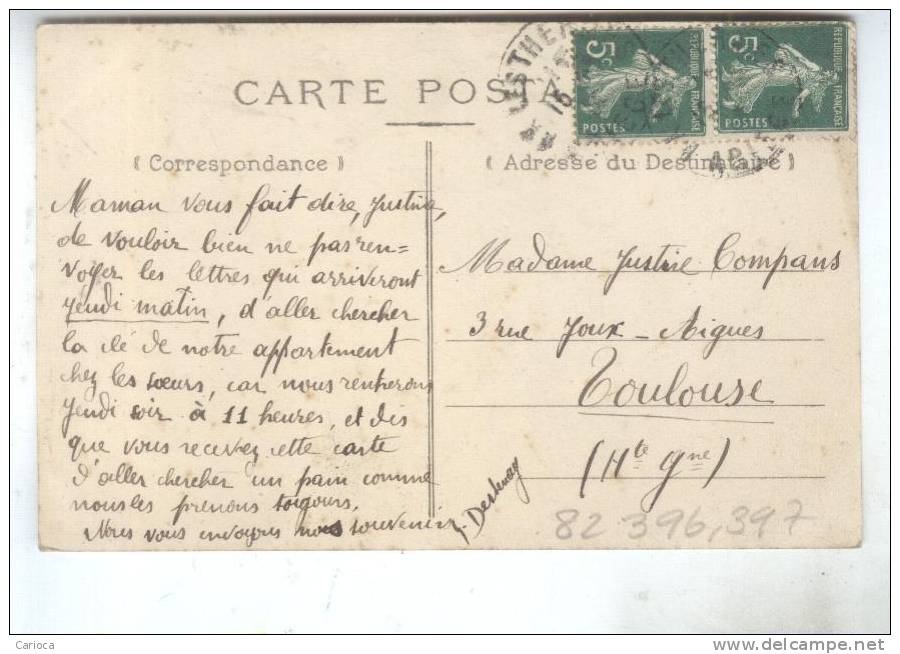 CARTE POSTA
5c
REPUBLIQUE FRANÇAISE
POSTES
5c
REPUBLIQUE FRANÇAISE
POSTES
( Correspondance )
( Adresse du Destinataire )
Maman vous fait dire, Justine,
de vouloir bien ne pas ren=
voyer les lettres qui arriveront
Jeudi matin, d'aller chercher
la clé de notre appartement
chez les sœurs, car nous rentrerons
Jeudi soir à 11 heures, et dès
que vous recevrez cette carte
d'aller chercher un pain comme
nous les prenons toujours.
Nous vous envoyons nos souvenirs
Madame Justine Compans
3 rue Joux-Aigues
Toulouse
(Hte Gne)
82 396,397
Carioca
www.delcampe.net